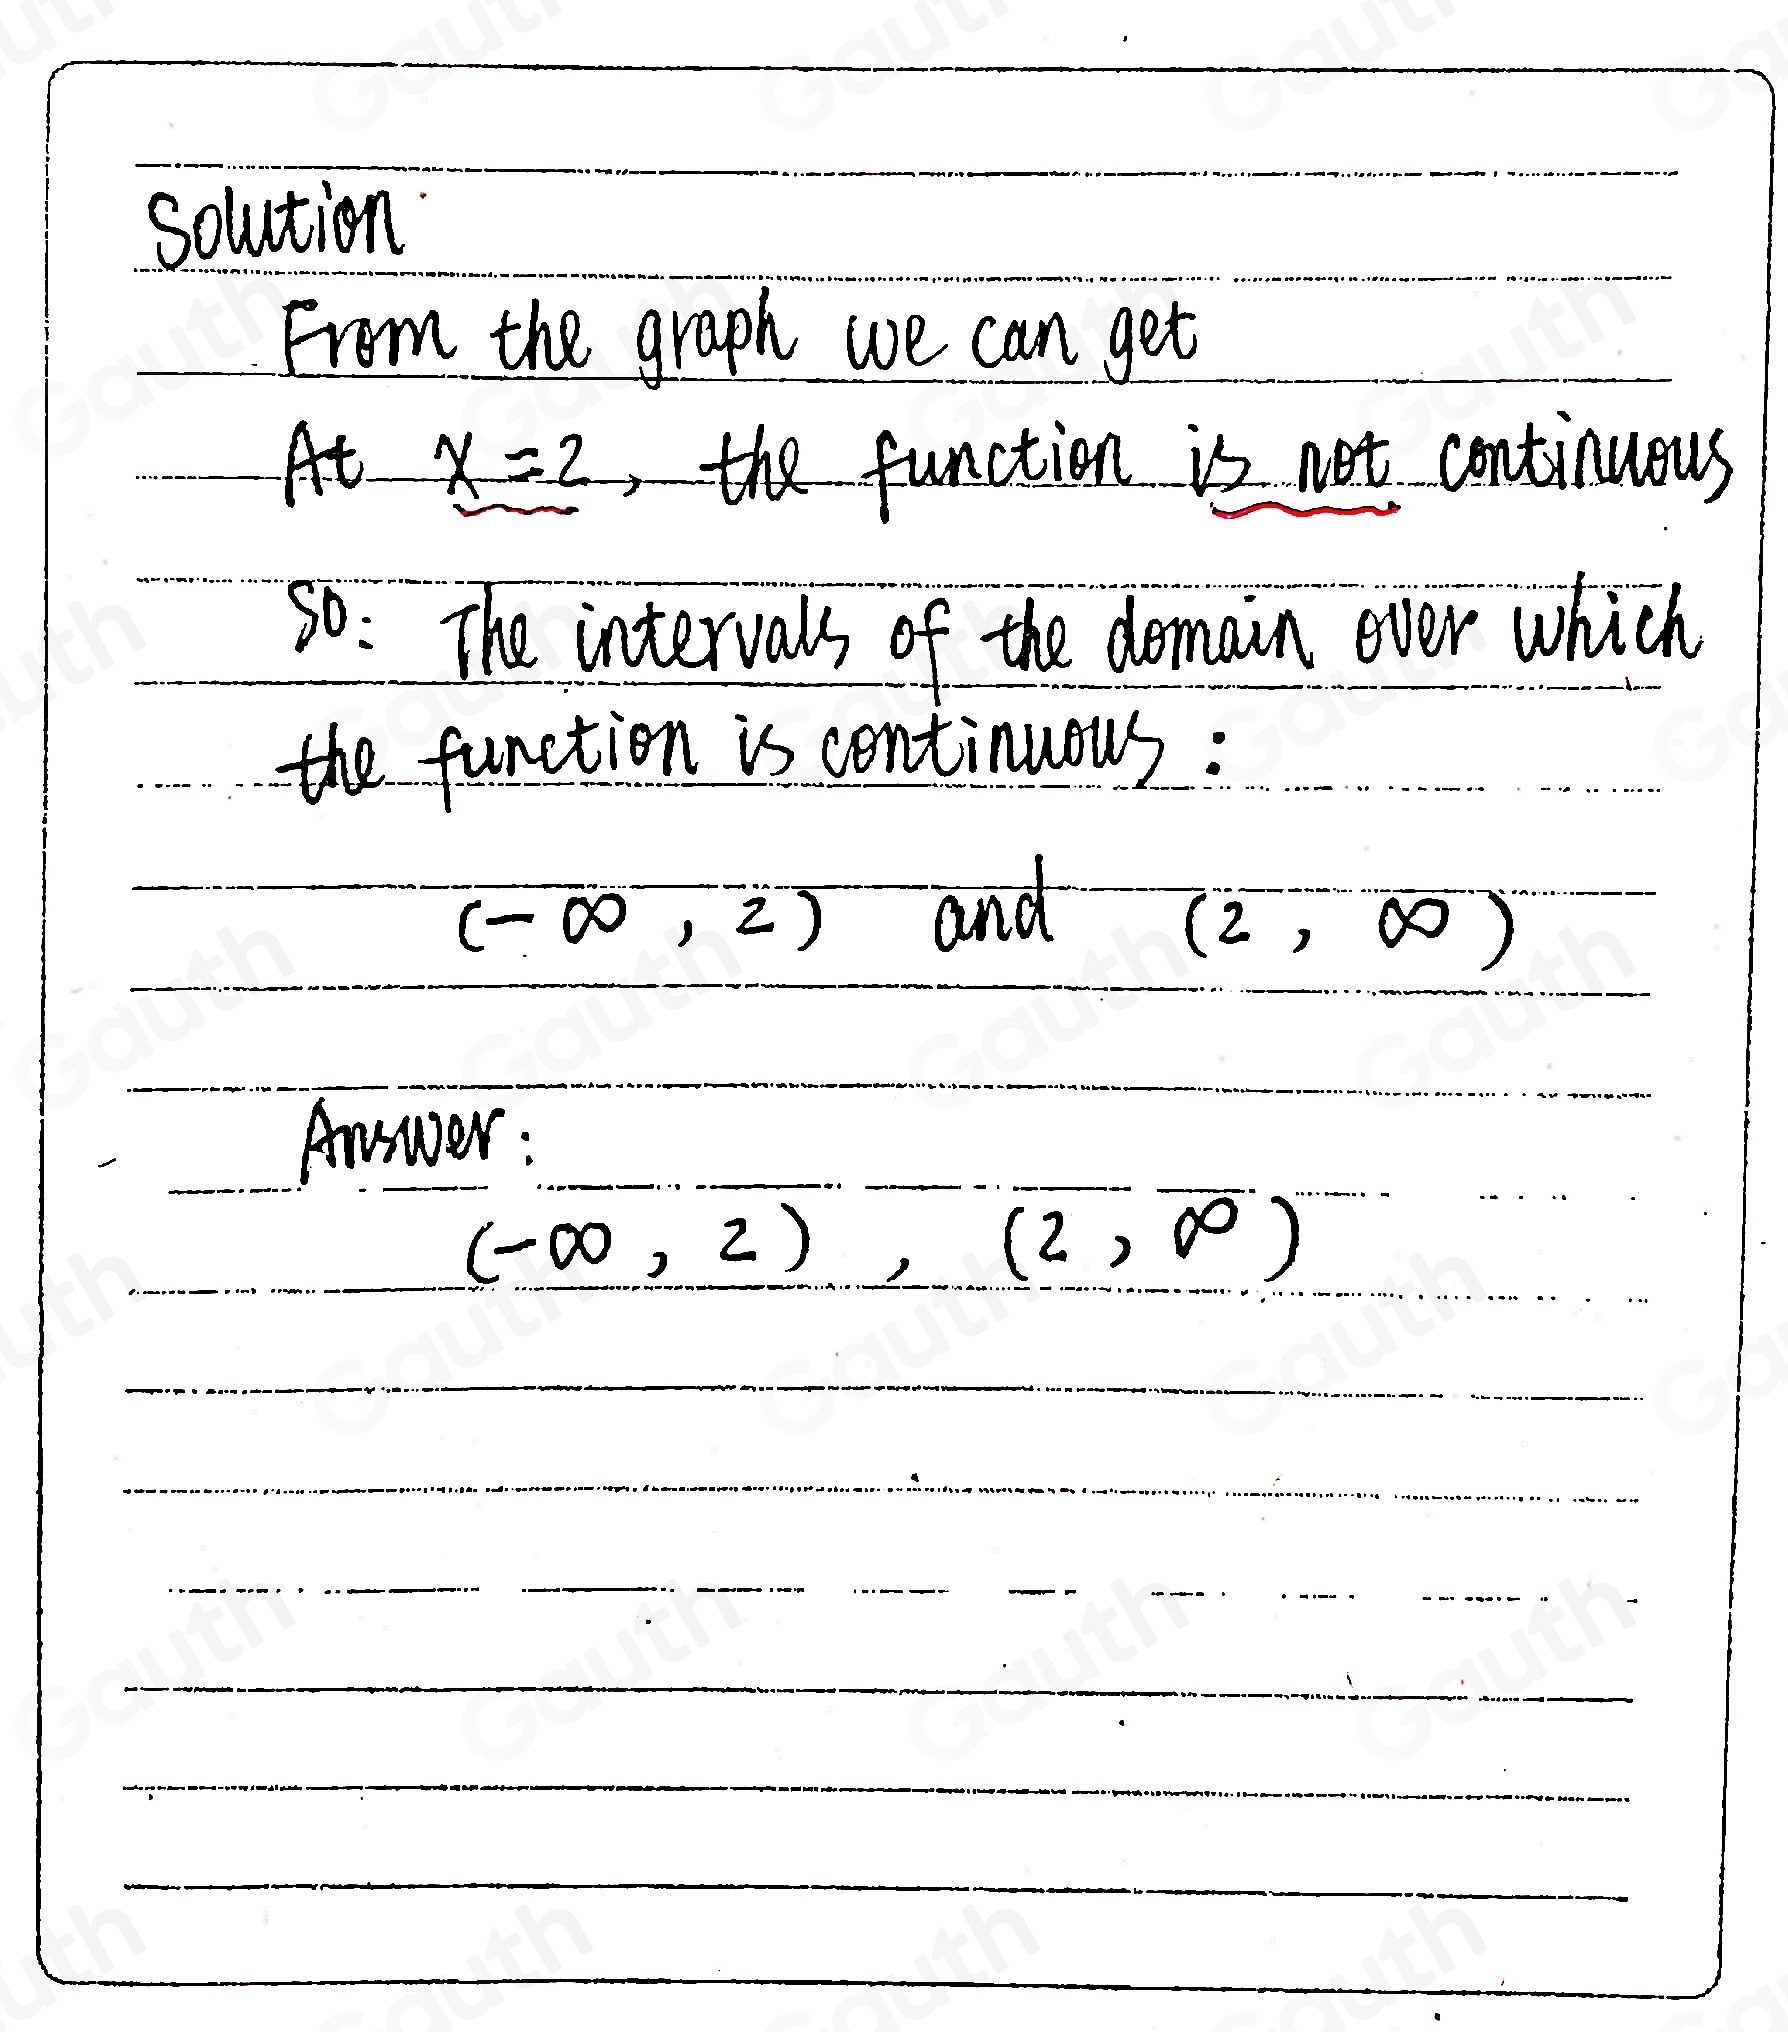 Solution
From the graph we can get
At x = 2, the function is not continuous
So: The intervals of the domain over which
the function is continuous :
(-∞, 2) and (2, ∞)
Answer:
(-∞, 2), (2, ∞)